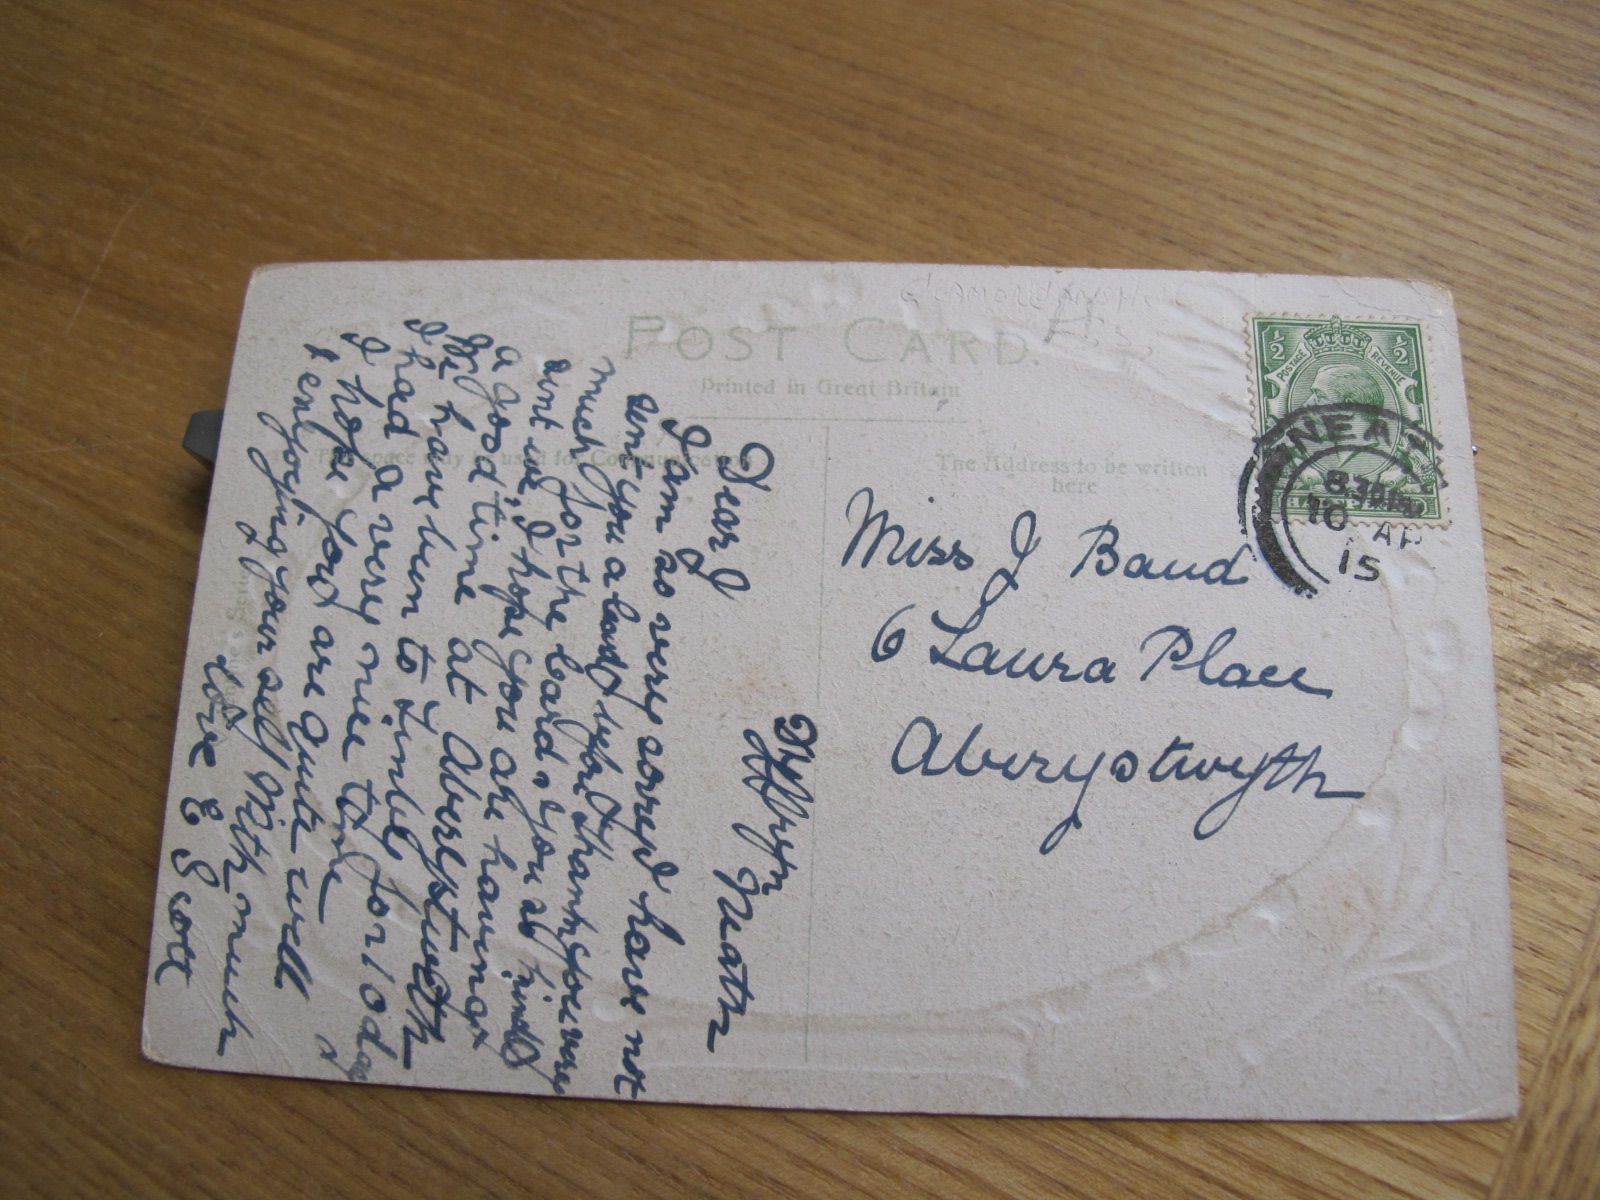 POST CARD.
Printed in Great Britain
This space may be used for Communication
The Address to be written
here
½ ½
POSTAGE REVENUE
NEATH
8 30 PM
10 AP
15
Miss J Baud
6 Laura Place
Aberystwyth
Neath
Dear J
I am so very sorry I have not
sent you a card before. Thank you very
much for the card, you so kindly
sent me, I hope you are having
a good time at Aberystwyth
I have been to Tenby for 10 dys
I had a very nice time
I hope you are quite well &
enjoying your self With much
love E Scott